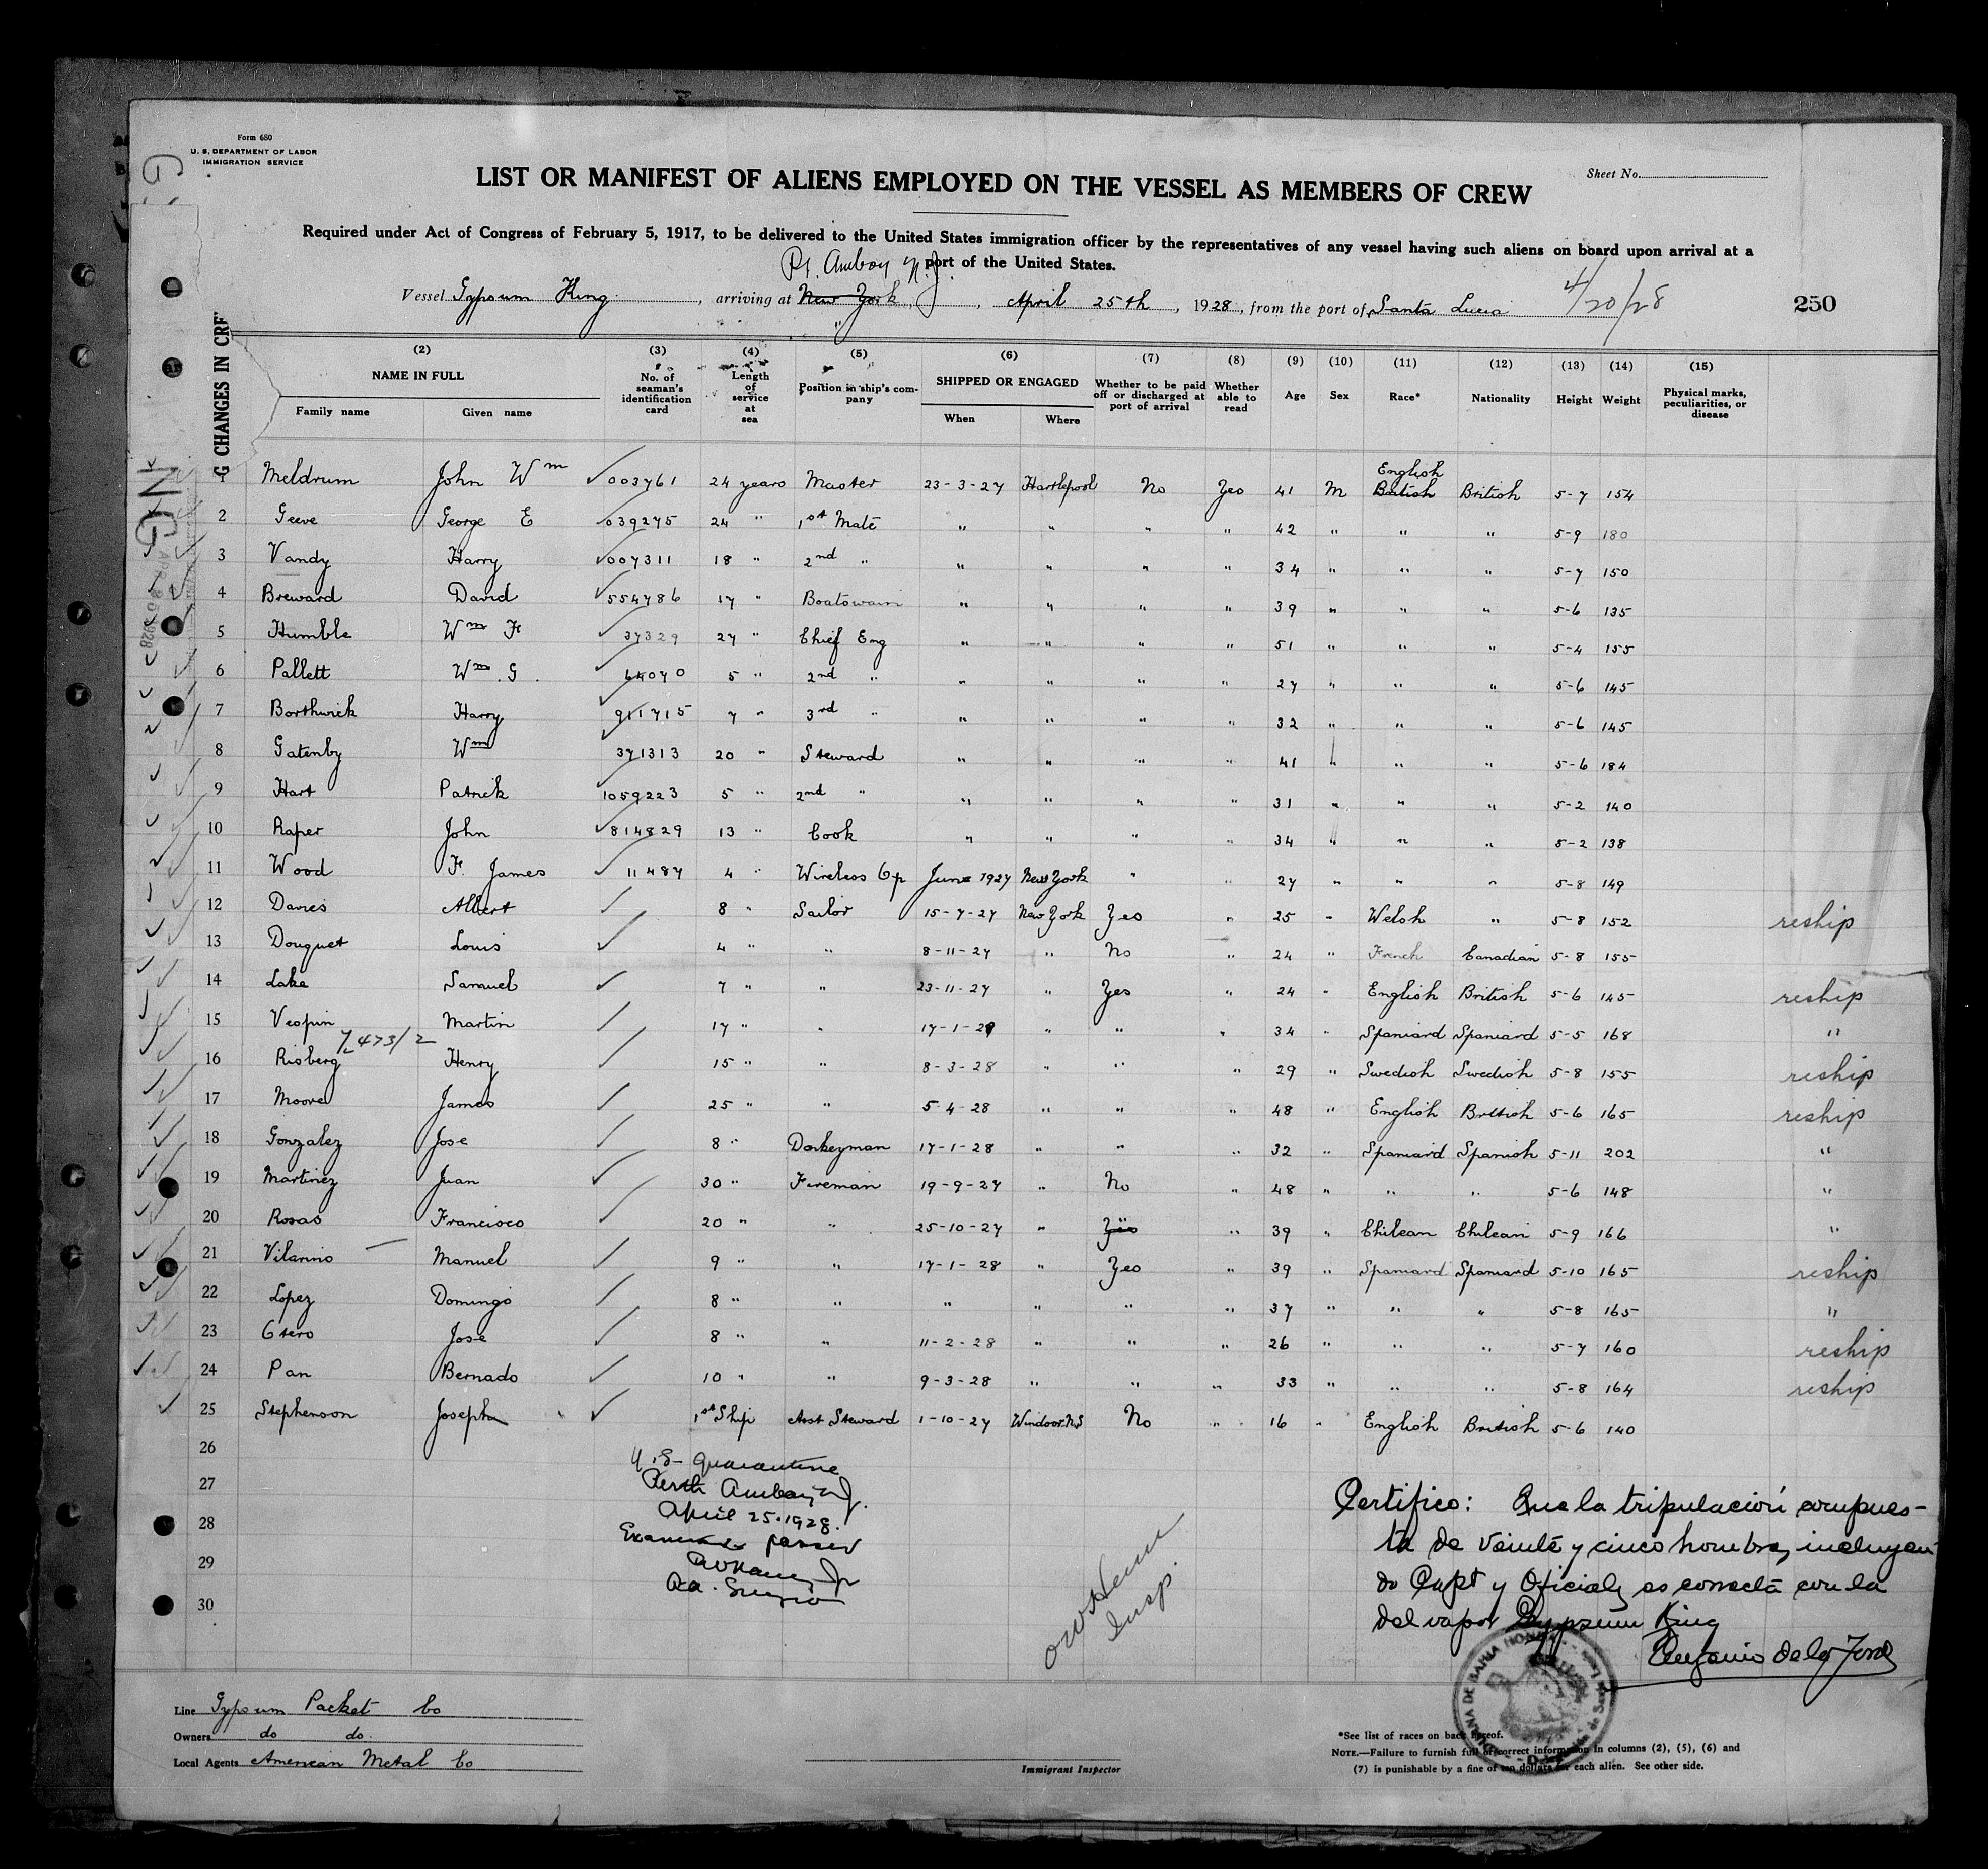 Form 680
U. S. DEPARTMENT OF LABOR
IMMIGRATION SERVICE
Sheet No.
LIST OR MANIFEST OF ALIENS EMPLOYED ON THE VESSEL AS MEMBERS OF CREW
Required under Act of Congress of February 5, 1917, to be delivered to the United States immigration officer by the representatives of any vessel having such aliens on board upon arrival at a
port of the United States.
Pt. Amboy N.J.
Vessel Gypsum King, arriving at New York, April 25th, 1928, from the port of Santa Lucia 4/20/28
250
G CHANGES IN CRE
NG
(2) (3) (4) (5) (6) (7) (8) (9) (10) (11) (12) (13) (14) (15)
NAME IN FULL
Family name Given name
No. of seaman's identification card
Length of service at sea
Position in ship's company
SHIPPED OR ENGAGED
When Where
Whether to be paid off or discharged at port of arrival
Whether able to read
Age Sex Race* Nationality Height Weight
Physical marks, peculiarities, or disease
English
1 Meldrum John Wm 003761 24 years Master 23-3-27 Hartlepool No Yes 41 M British British 5-7 154
2 Geeve George E 039275 24 " 1st Mate " " " " 42 " " " 5-9 180
3 Vandy Harry 007311 18 " 2nd " " " " " 34 " " " 5-7 150
4 Breward David 554786 17 " Boatswain " " " " 39 " " " 5-6 135
5 Humble Wm F 37329 27 " Chief Eng " " " " 51 " " " 5-4 155
6 Pallett Wm. G. 64070 5 " 2nd " " " " " 27 " " " 5-6 145
7 Borthwick Harry 911715 7 " 3rd " " " " " 32 " " " 5-6 145
8 Gatenby Wm 371313 20 " Steward " " " " 41 " " " 5-6 184
9 Hart Patrick 1059223 5 " 2nd " " " " " 31 " " " 5-2 140
10 Raper John 814829 13 " Cook " " " " 34 " " " 5-2 138
11 Wood F. James 11487 4 " Wireless Op June 1927 New York " " 27 " " " 5-8 149
12 Davies Albert 8 " Sailor 15-7-27 New York Yes " 25 " Welsh " 5-8 152 reship
13 Douguet Louis 4 " " 8-11-27 " No " 24 " French Canadian 5-8 155
14 Lake Samuel 7 " " 23-11-27 " Yes " 24 " English British 5-6 145 reship
15 Vespin Martin 17 " " 17-1-28 " " " 34 " Spaniard Spaniard 5-5 168 "
16 Risberg Henry 15 " " 8-3-28 " " " 29 " Swedish Swedish 5-8 155 reship
17 Moore James 25 " " 5-4-28 " " " 48 " English British 5-6 165 reship
18 Gonzalez Jose 8 " Donkeyman 17-1-28 " " " 32 " Spaniard Spanish 5-11 202 "
19 Martinez Juan 30 " Fireman 19-9-27 " No " 48 " " " 5-6 148 "
20 Rosas Francisco 20 " " 25-10-27 " Yes " 39 " Chilean Chilean 5-9 166 "
21 Vilarino Manuel 9 " " 17-1-28 " Yes " 39 " Spaniard Spaniard 5-10 165 reship
22 Lopez Domingo 8 " " " " " " 37 " " " 5-8 165 "
23 Otero Jose 8 " " 11-2-28 " " " 26 " " " 5-7 160 reship
24 Pan Bernado 10 " " 9-3-28 " " " 33 " " " 5-8 164 reship
25 Stephenson Joseph 1st Ship Asst Steward 1-10-27 Windsor N.S No " 16 " English British 5-6 140
26
27
28
29
30
U.S. Quarantine
Perth Amboy N.J.
April 25. 1928.
Examined passed
Insp.
Certifico: Que la tripulación compues-
ta de veinte y cinco hombres, incluyen
do Capt y Oficiales es correcta con la
del vapor Gypsum King
Line Gypsum Packet Co
Owners do do.
Local Agents American Metal Co
Immigrant Inspector
*See list of races on back hereof.
NOTE.—Failure to furnish full or correct information in columns (2), (5), (6) and
(7) is punishable by a fine of ten dollars for each alien. See other side.